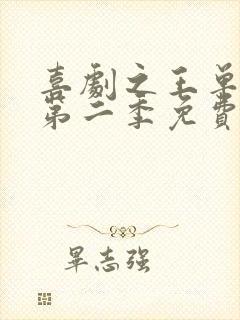 喜劇之王單
第二季免費
畢志強